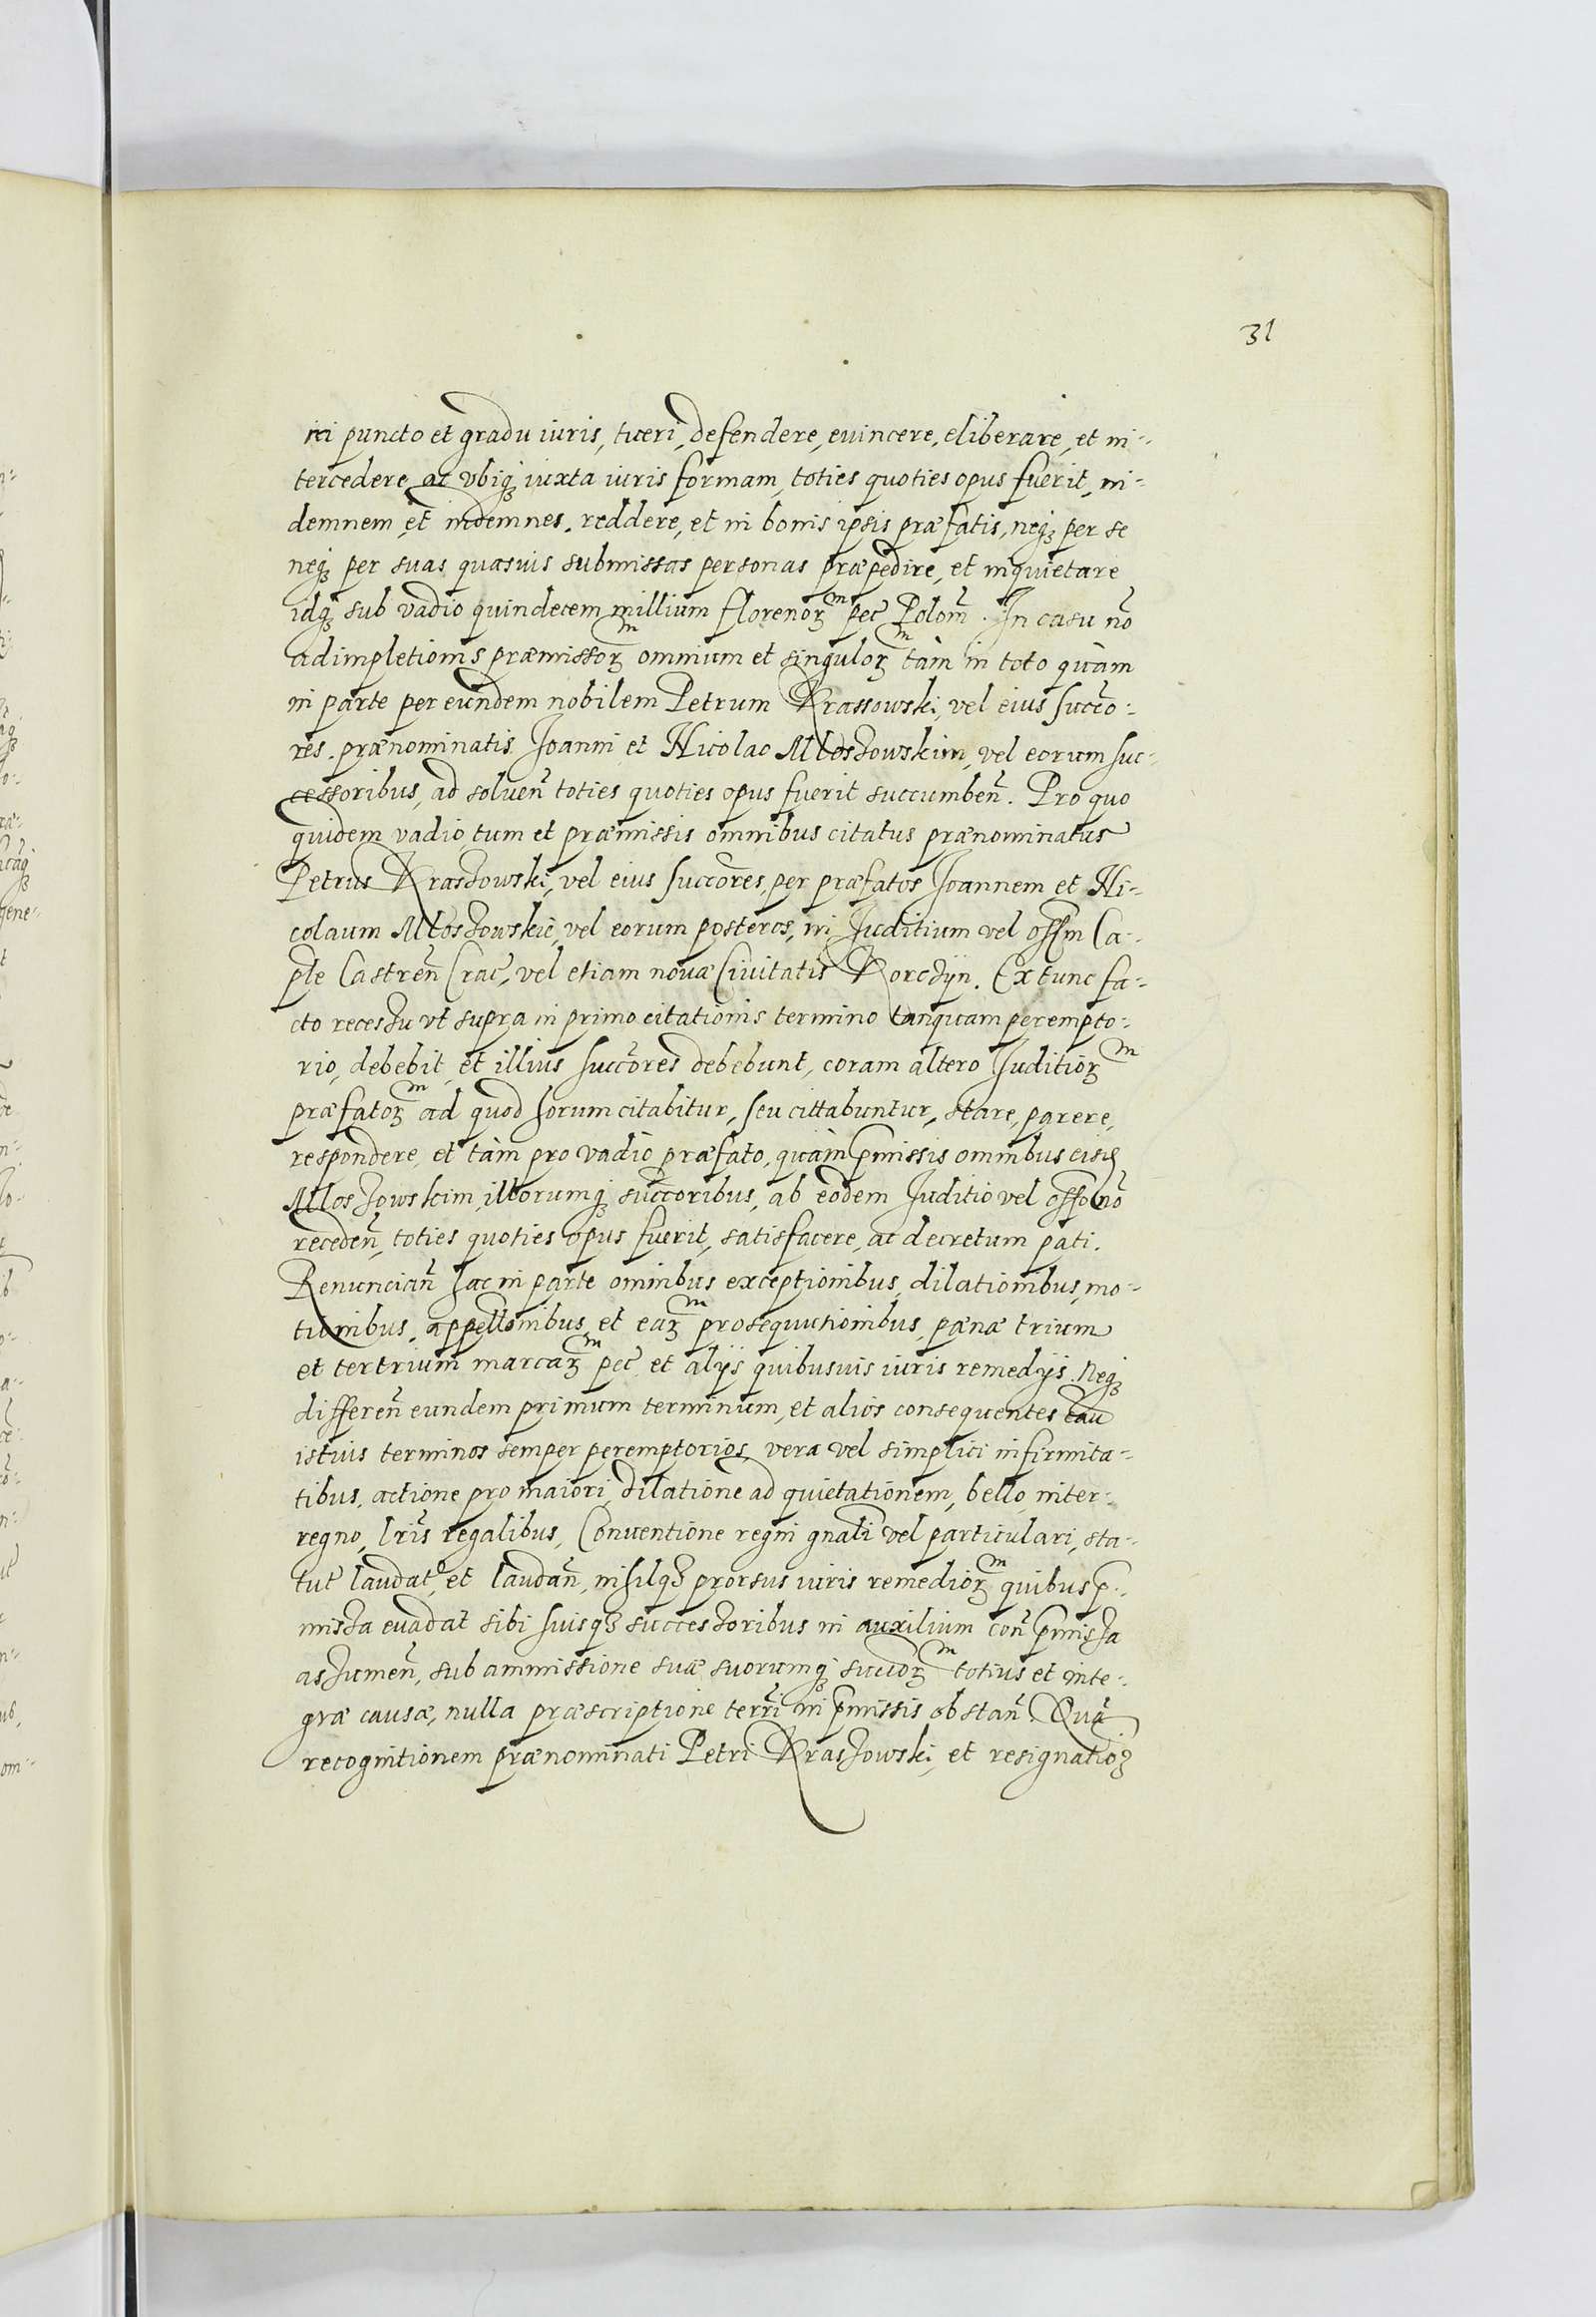 31
rei puncto et gradu iuris, tueri, defendere, euincere, eliberare, et in-
tercedere, ac vbiq₃ iuxta iuris formam, toties quoties opus fuerit, in-
demnem et indemnes, reddere, et in bonis ipsis præfatis, neq₃ per se
neq₃ per suas quasuis submissas personas præpedire, et inquietare
idq₃ sub vadio quindecem millium florenoꝝᵐ pec̃ Polom̃. In casu nõ
adimpletionis præmissoꝝᵐ omnium et singuloꝝᵐ tàm in toto quàm
in parte per eundem nobilem Petrum Krassowski, vel eius succõ-
res, prænominatis Joanni et Nicolao Mloszowskim, vel eorum suc-
cessoribus, ad soluen̄ toties quoties opus fuerit succumben̄. Pro quo
quidem vadio, tum et præmissis omnibus citatus prænominatus
Petrus Kraszowski, vel eius succõres, per præfatos Joannem et Ni-
colaum Mloszowskie, vel eorum posteros, in Juditium vel offm̃ Ca-
ple Castren̄ Crac̃, vel etiam nouæ Ciuitatis Korczÿn. Ex tunc fa-
cto recessu vt supra in primo citationis termino tanquam perempto-
rio, debebit, et illius succõres debebunt, coram altero Juditioꝝᵐ
præfatoꝝᵐ ad quod forum citabitur, seu cittabuntur, stare, parere,
respondere, et tàm pro vadio præfato, quàm p̄missis omnibus eisd̃
Mloszowskim, illorumq₃ succõribus, ab eodem Juditio vel offo nõ
receden̄, toties quoties opus fuerit, satisfacere, ac decretum pati.
Renuncian̄ hac in parte omnibus exceptionibus, dilationibus, mo-
tionibus, appellõnibus, et eaꝝᵐ prosequutionibus, pænæ trium
et tertrium marcaꝝᵐ pec̃ et alÿs quibusuis iuris remedÿs. Neq₃
differen̄ eundem primum terminum, et alios consequentes cau
istius terminos semper peremptorios, vera vel simplici infirmita-
tibus, actione pro maiori, dilatione ad quietationem, bello, inter-
regno, lris̃ regalibus, Conuentione regni gnali vel particulari, sta-
tut̃ laudat̃, et laudan̄, nihilq₃ prorsus iuris remedioꝝᵐ quibus p̄-
missa euadat sibi suisq₃ successoribus in auxilium con̄ p̄missa
assumen̄, sub ammissione suæ suorumq₃ succõꝝᵐ totius et inte-
græ causæ, nulla præscriptione terr̃i in p̄missis obstan̄. Quã
recognitionem prænominati Petri Kraszowski, et resignatioȝ